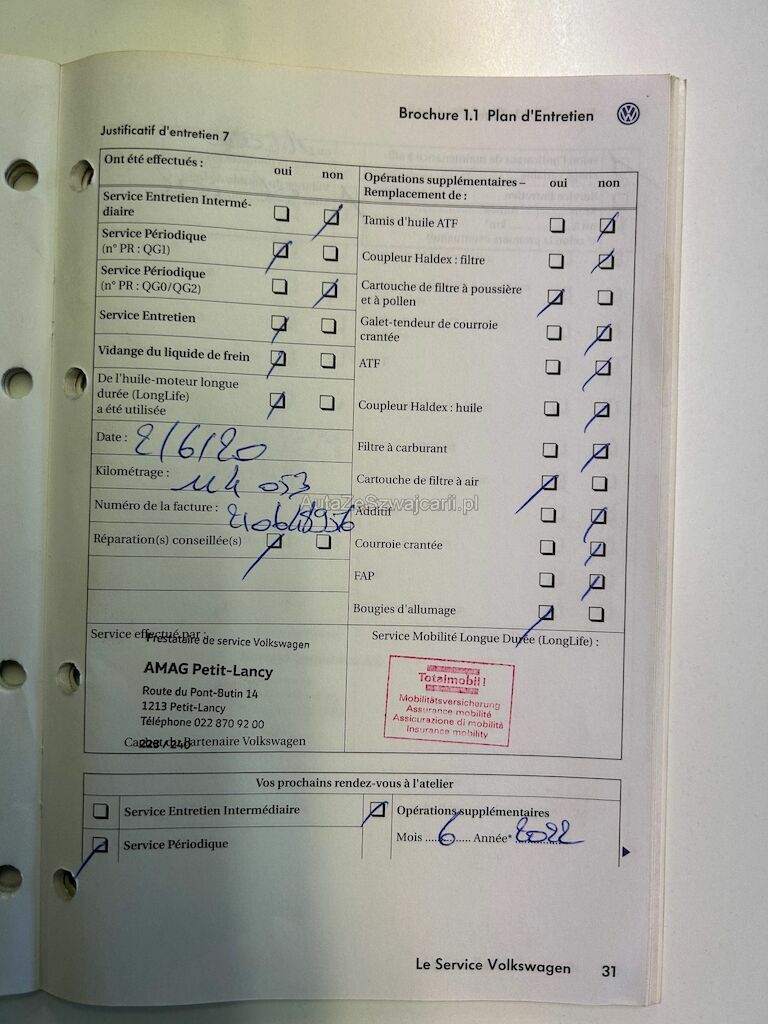 Brochure 1.1 Plan d'Entretien
Justificatif d'entretien 7
Ont été effectués : oui non
Service Entretien Intermé-
diaire
Service Périodique
(n° PR : QG1)
Service Périodique
(n° PR : QG0/QG2)
Service Entretien
Vidange du liquide de frein
De l'huile-moteur longue
durée (LongLife)
a été utilisée
Date : 2/6/20
Kilométrage : 114 053
Numéro de la facture :
Réparation(s) conseillée(s)
Opérations supplémentaires – oui non
Remplacement de :
Tamis d'huile ATF
Coupleur Haldex : filtre
Cartouche de filtre à poussière
et à pollen
Galet-tendeur de courroie
crantée
ATF
Coupleur Haldex : huile
Filtre à carburant
Cartouche de filtre à air
Additif
Courroie crantée
FAP
Bougies d'allumage
AutaZeSzwajcarii.pl
Service effectué par :
Prestataire de service Volkswagen
AMAG Petit-Lancy
Route du Pont-Butin 14
1213 Petit-Lancy
Téléphone 022 870 92 00
Cachet du Partenaire Volkswagen
Service Mobilité Longue Durée (LongLife) :
Totalmobil!
Mobilitätsversicherung
Assurance mobilité
Assicurazione di mobilità
Insurance mobility
Vos prochains rendez-vous à l'atelier
Service Entretien Intermédiaire
Service Périodique
Opérations supplémentaires
Mois ....6..... Année* 2022
Le Service Volkswagen 31